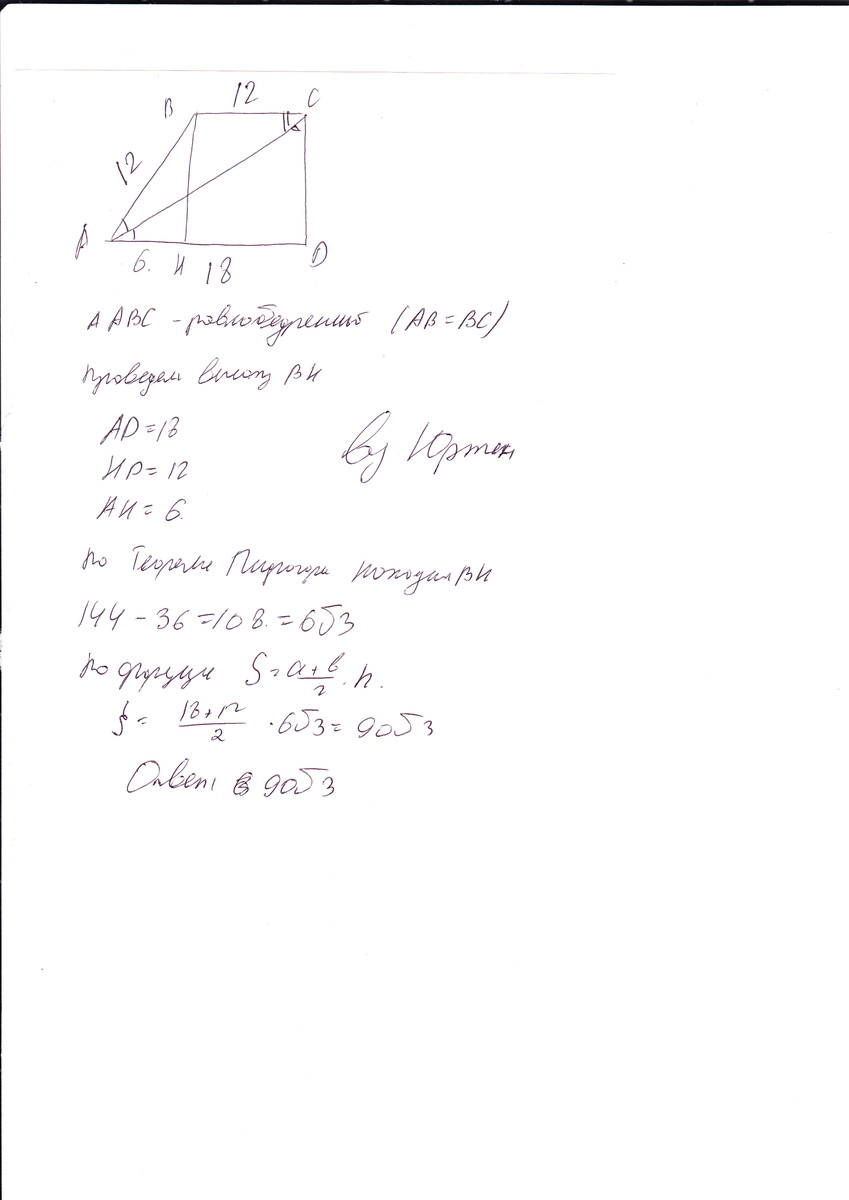 B 12 C
12
A 6. H 18 D
Δ ABC - равнобедренный (AB = BC)
Проведем высоту BH
AD = 18
HD = 12
by Юртен
AH = 6.
по Теореме Пифагора находим BH
144 - 36 = 108. = 6√3
по формуле S = a + b / 2 · h.
S = 18 + 12 / 2 · 6√3 = 90√3
Ответ 90√3